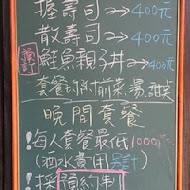 握壽司→400元
散壽司→400元
預訂 鮮魚親子丼→400元
套餐均附前菜.湯.甜點
晚間套餐
!每人套餐最低1000元
(酒水費用另計)
!採預約制